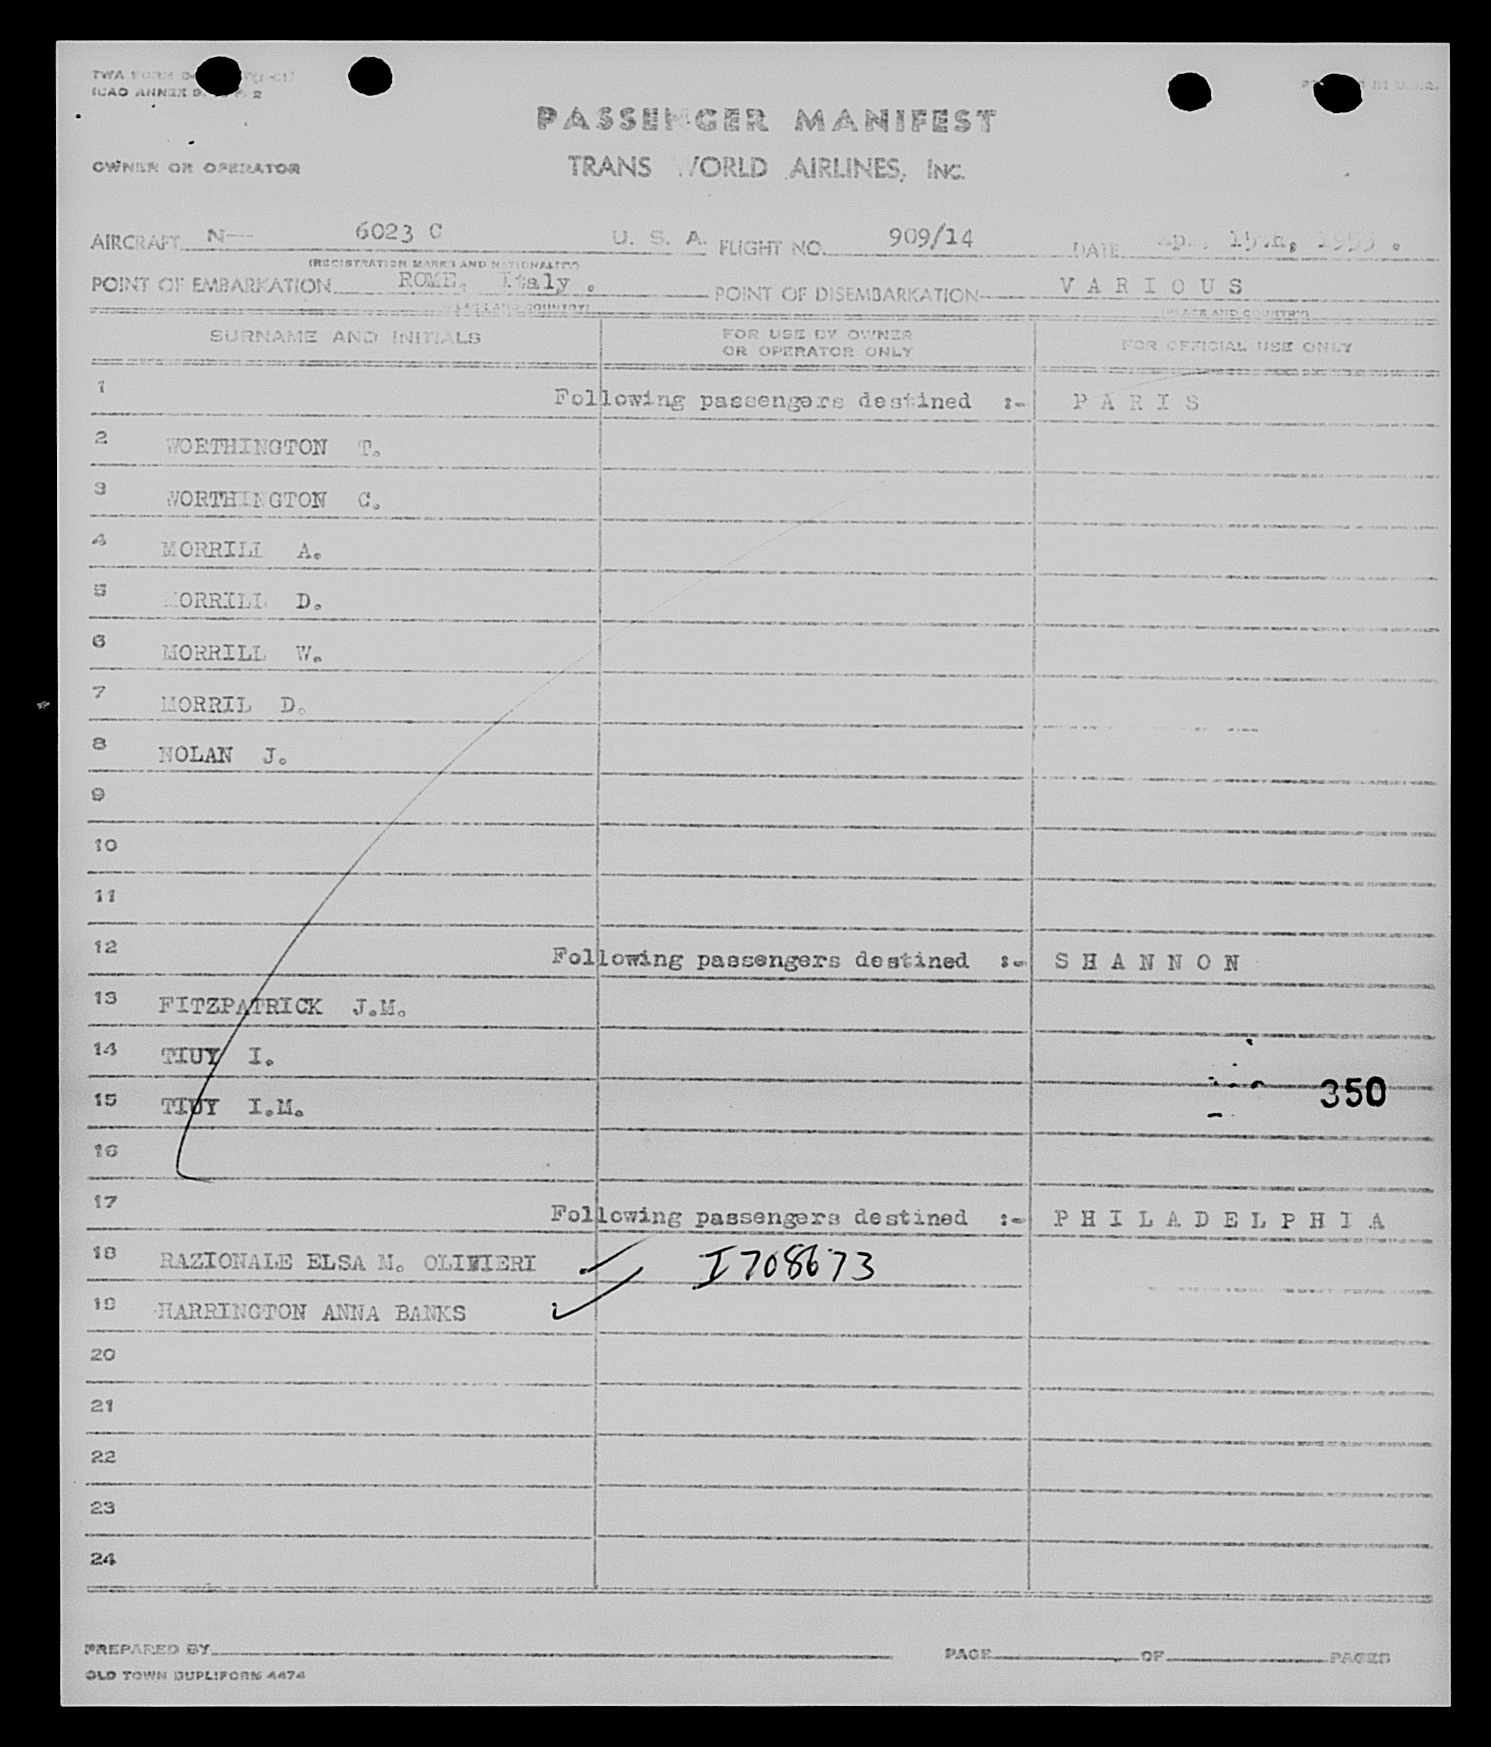 TWA FORM
ICAO ANNEX 9
PASSENGER MANIFEST
OWNER OR OPERATOR
TRANS WORLD AIRLINES, INC.
AIRCRAFT N— 6023 C U. S. A. FLIGHT NO. 909/14 DATE Apr. 15th, 1955 .
(REGISTRATION MARKS AND NATIONALITY)
POINT OF EMBARKATION ROME, Italy . POINT OF DISEMBARKATION V A R I O U S
(PLACE AND COUNTRY) (PLACE AND COUNTRY)
SURNAME AND INITIALS FOR USE BY OWNER OR OPERATOR ONLY FOR OFFICIAL USE ONLY
1 Following passengers destined :- P A R I S
2 WORTHINGTON T.
3 WORTHINGTON C.
4 MORRILL A.
5 MORRILL D.
6 MORRILL W.
7 MORRIL D.
8 NOLAN J.
9
10
11
12 Following passengers destined :- S H A N N O N
13 FITZPATRICK J.M.
14 TIUY I.
15 TIUY I.M.
350
16
17 Following passengers destined :- P H I L A D E L P H I A
18 RAZIONALE ELSA M. OLIVIERI ✓ I708673
19 HARRINGTON ANNA BANKS ✓
20
21
22
23
24
PREPARED BY PAGE OF PAGES
OLD TOWN DUPLIFORM 4474